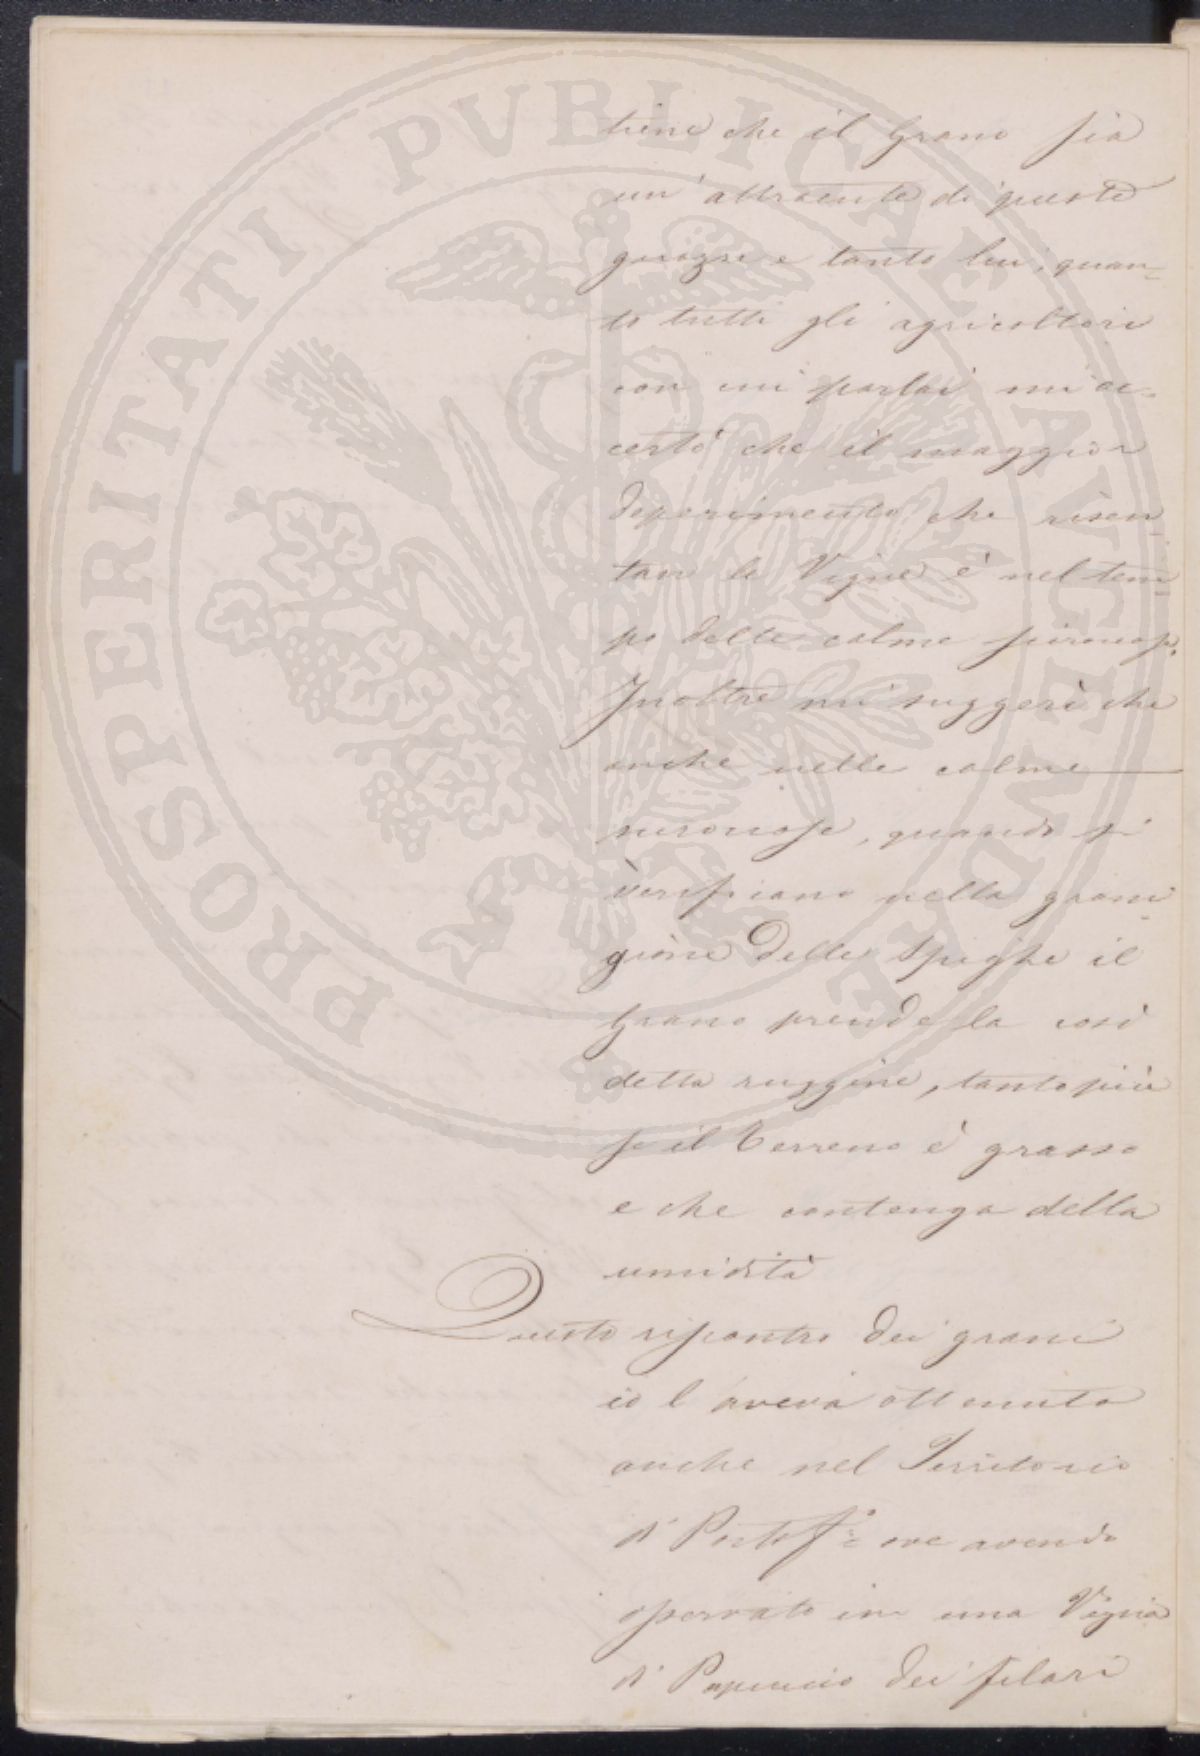 PROSPERITATI PUBLICAE AUGENDAE
tiene che il Grano sia
un' attraente di queste
guazze e tanto lui, quan-
to tutti gli agricoltori
con cui parlai mi ac-
certò che il maggior
deperimento che risen-
tan le Vigne è nel tem-
po delle calme sciroccose.
Inoltre mi suggerì che
anche nelle calme
scirocose, quando si
verificano nella grani-
gione delle Spighe il
Grano prende la così
detta ruggine, tanto più
se il Terreno è grasso
e che contenga della
umidità
Questo riscontro dei grani
io l'aveva ottenuto
anche nel Territorio
di Portof.º ove avendo
osservato in una Vigna
di dei filari